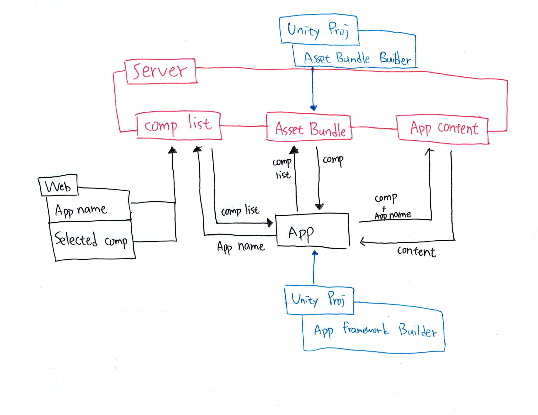 Unity Proj
Asset Bundle Builder
Server
comp list
Asset Bundle
App content
comp
list
comp
Web
App name
Selected comp
comp list
App name
App
comp
+
App name
content
Unity Proj
App framework Builder